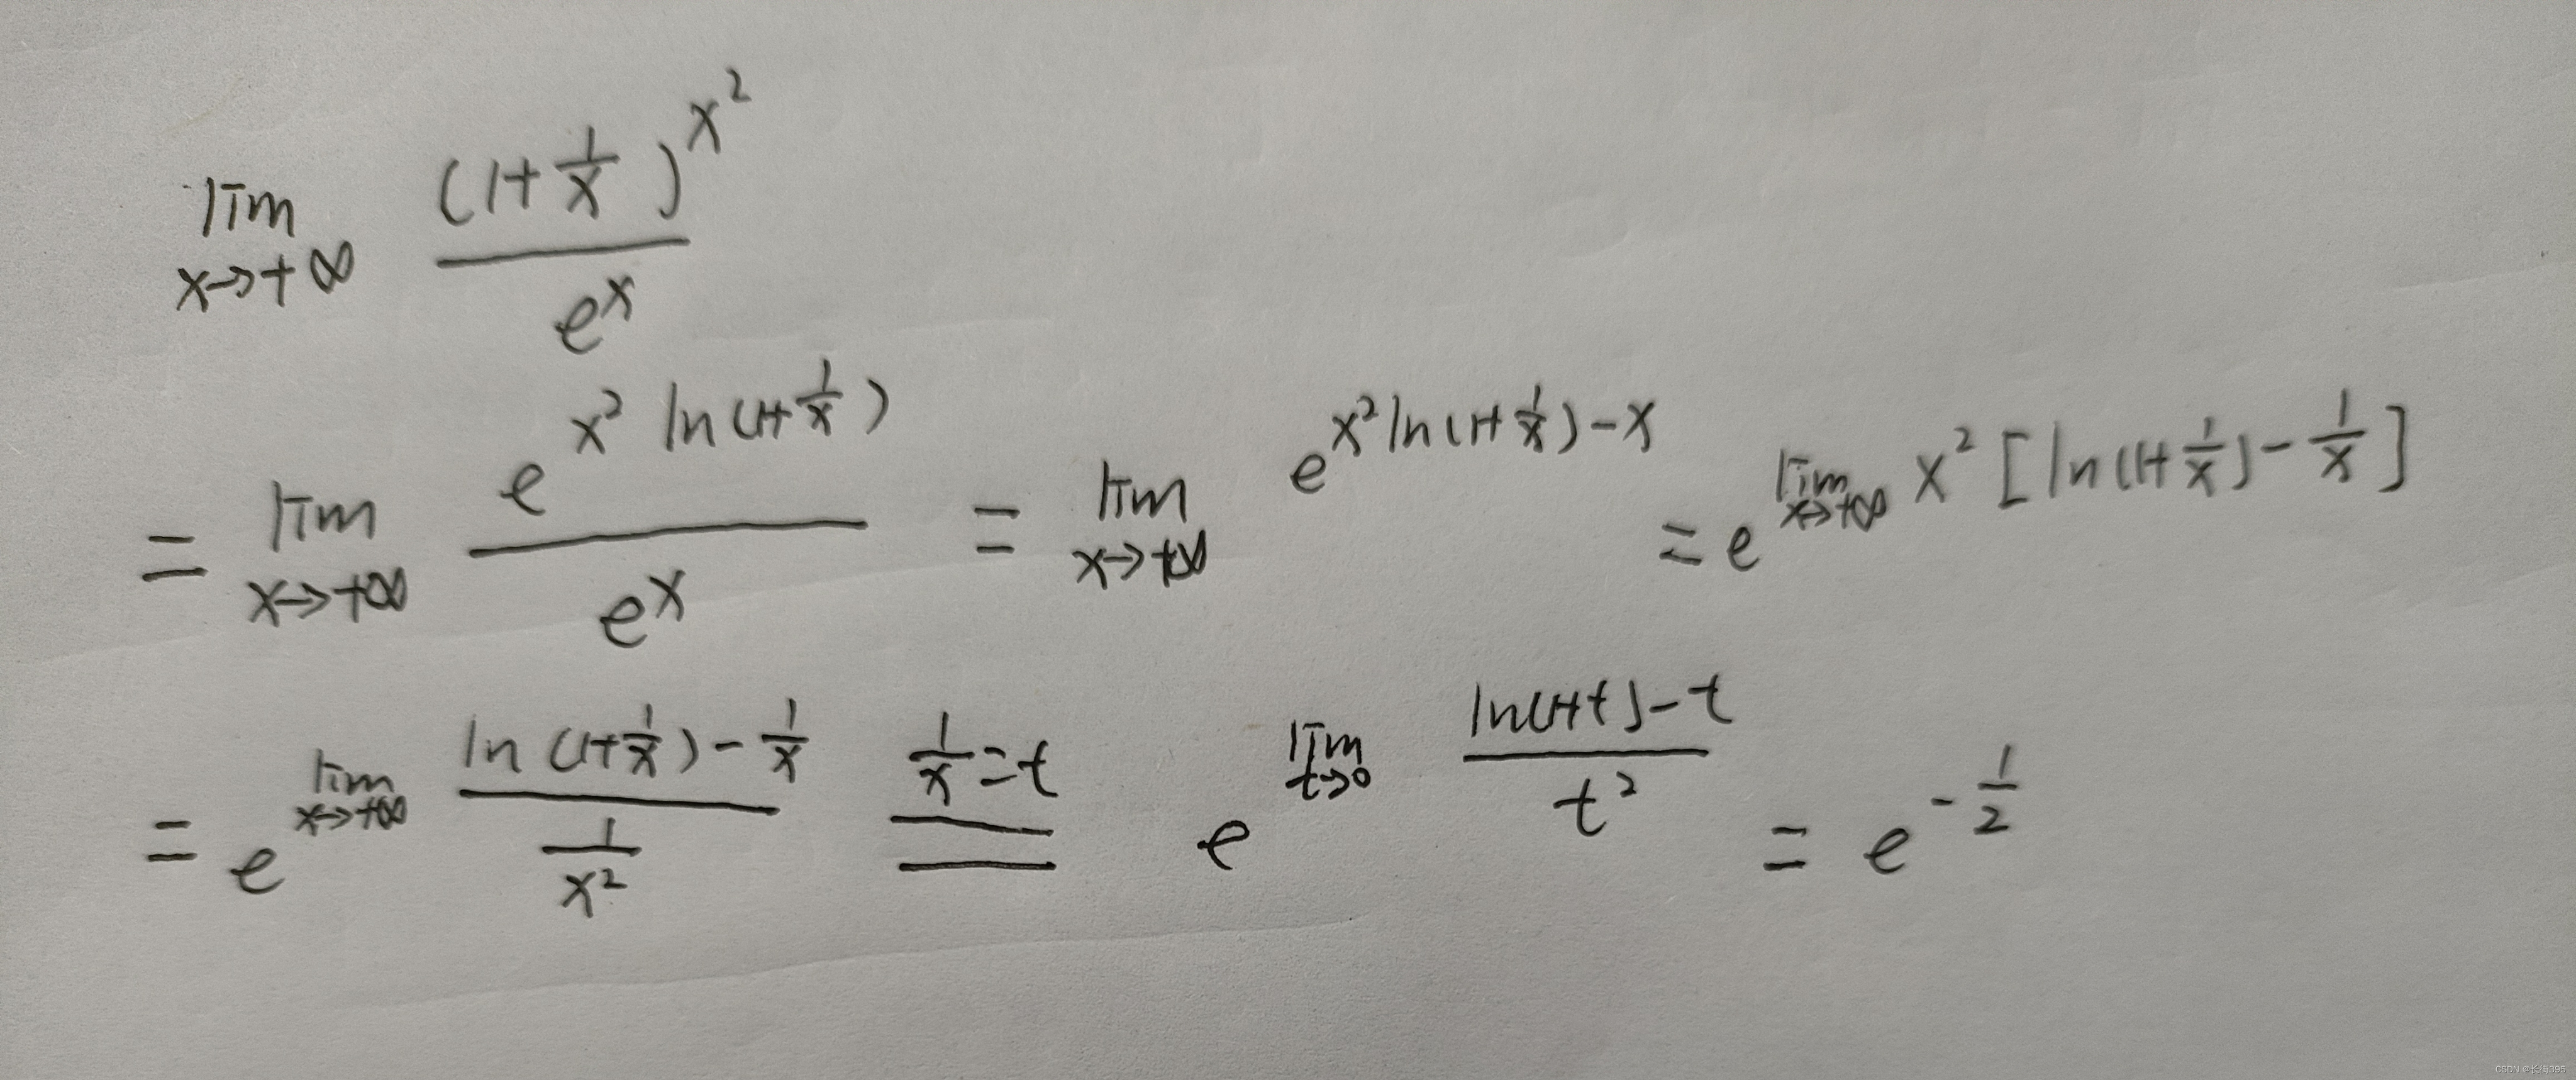 lim_{x→+∞} \frac{(1+\frac{1}{x})^{x^2}}{e^x}
= lim_{x→+∞} \frac{e^{x^2 ln(1+\frac{1}{x})}}{e^x} = lim_{x→+∞} e^{x^2 ln(1+\frac{1}{x})-x} = e^{lim_{x→+∞} x^2 [ln(1+\frac{1}{x})-\frac{1}{x}]}
= e^{lim_{x→+∞} \frac{ln(1+\frac{1}{x})-\frac{1}{x}}{\frac{1}{x^2}}} \overset{\frac{1}{x}=t}{=} e^{lim_{t→0} \frac{ln(1+t)-t}{t^2}} = e^{-\frac{1}{2}}
CSDN @长街395